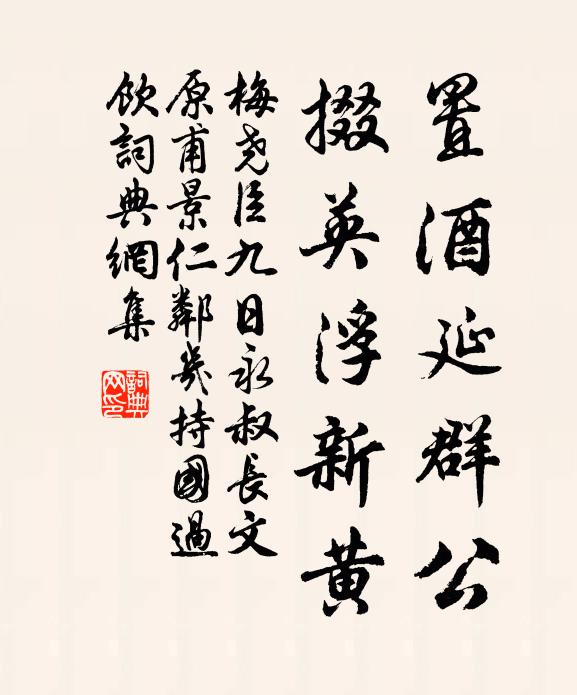 置酒延群公
掇英浮新黄
梅尧臣九日永叔長文
原甫景仁鄰幾持國過
飲詞典網集
詞典網印